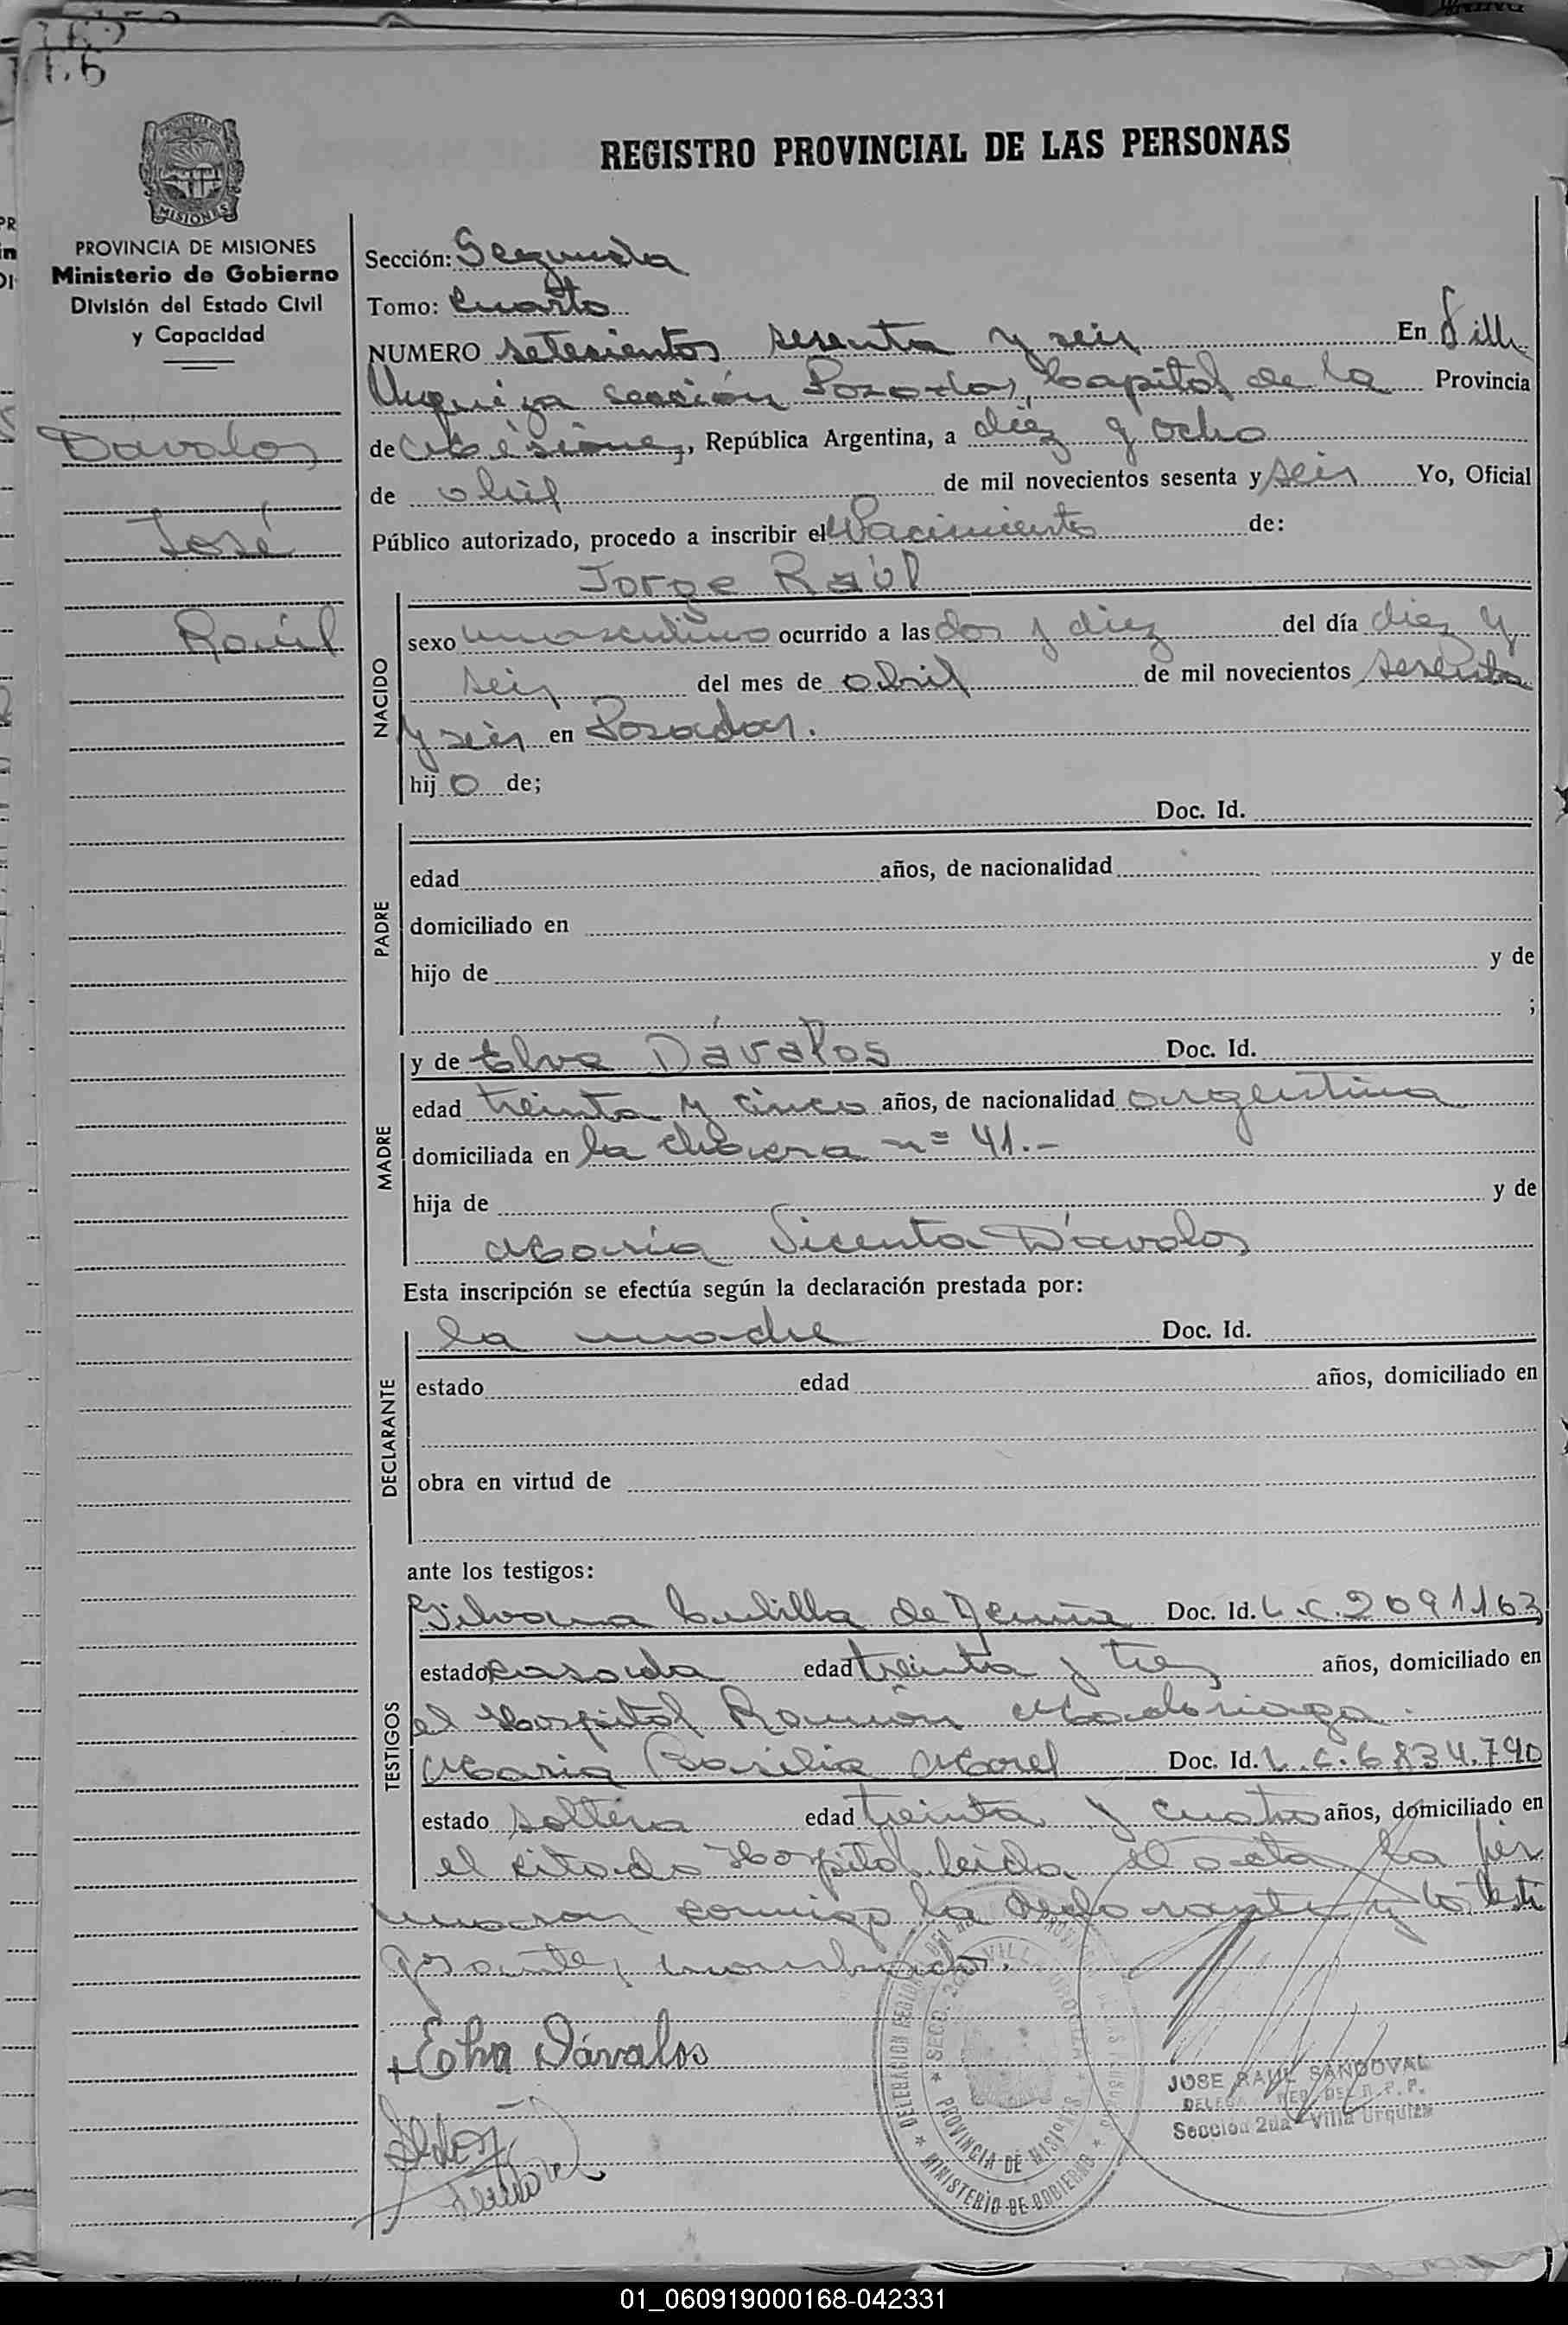 REGISTRO PROVINCIAL DE LAS PERSONAS
MISIONES
PROVINCIA DE MISIONES
Ministerio de Gobierno
División del Estado Civil
y Capacidad
Dávalos
José
Raúl
Sección: Segunda
Tomo: Cuarto
NUMERO setesientos sesenta y seis En Villa
Urquiza sección Posadas, Capital de la Provincia
de Misiones, República Argentina, a diez y ocho
de abril de mil novecientos sesenta y seis Yo, Oficial
Público autorizado, procedo a inscribir el Nacimiento de:
Jorge Raúl
NACIDO
sexo masculino ocurrido a las dos y diez del día diez y
seis del mes de abril de mil novecientos sesenta
y seis en Posadas.
hijo de;
PADRE
Doc. Id.
edad años, de nacionalidad
domiciliado en
hijo de y de
;
MADRE
y de Elva Dávalos Doc. Id.
edad treinta y cinco años, de nacionalidad argentina
domiciliada en la chacra nº 41.-
hija de y de
María Vicenta Dávalos
Esta inscripción se efectúa según la declaración prestada por:
DECLARANTE
la madre Doc. Id.
estado edad años, domiciliado en
obra en virtud de
ante los testigos:
TESTIGOS
Silvana de Doc. Id. L.C. 2091163
estado casada edad treinta y tres años, domiciliado en
el Hospital Ramón Madariaga.
María Basilia Morel Doc. Id. L.C. 6.834.790
estado soltera edad treinta y cuatro años, domiciliado en
el citado Hospital leida el acta la fir
maron conmigo la declarante y los testi
gos antes nombrados.
Dávalos
JOSE RAUL SANDOVAL
Sección 2da - Villa Urquiza
PROVINCIA DE MISIONES
MINISTERIO DE GOBIERNO
01_060919000168-042331